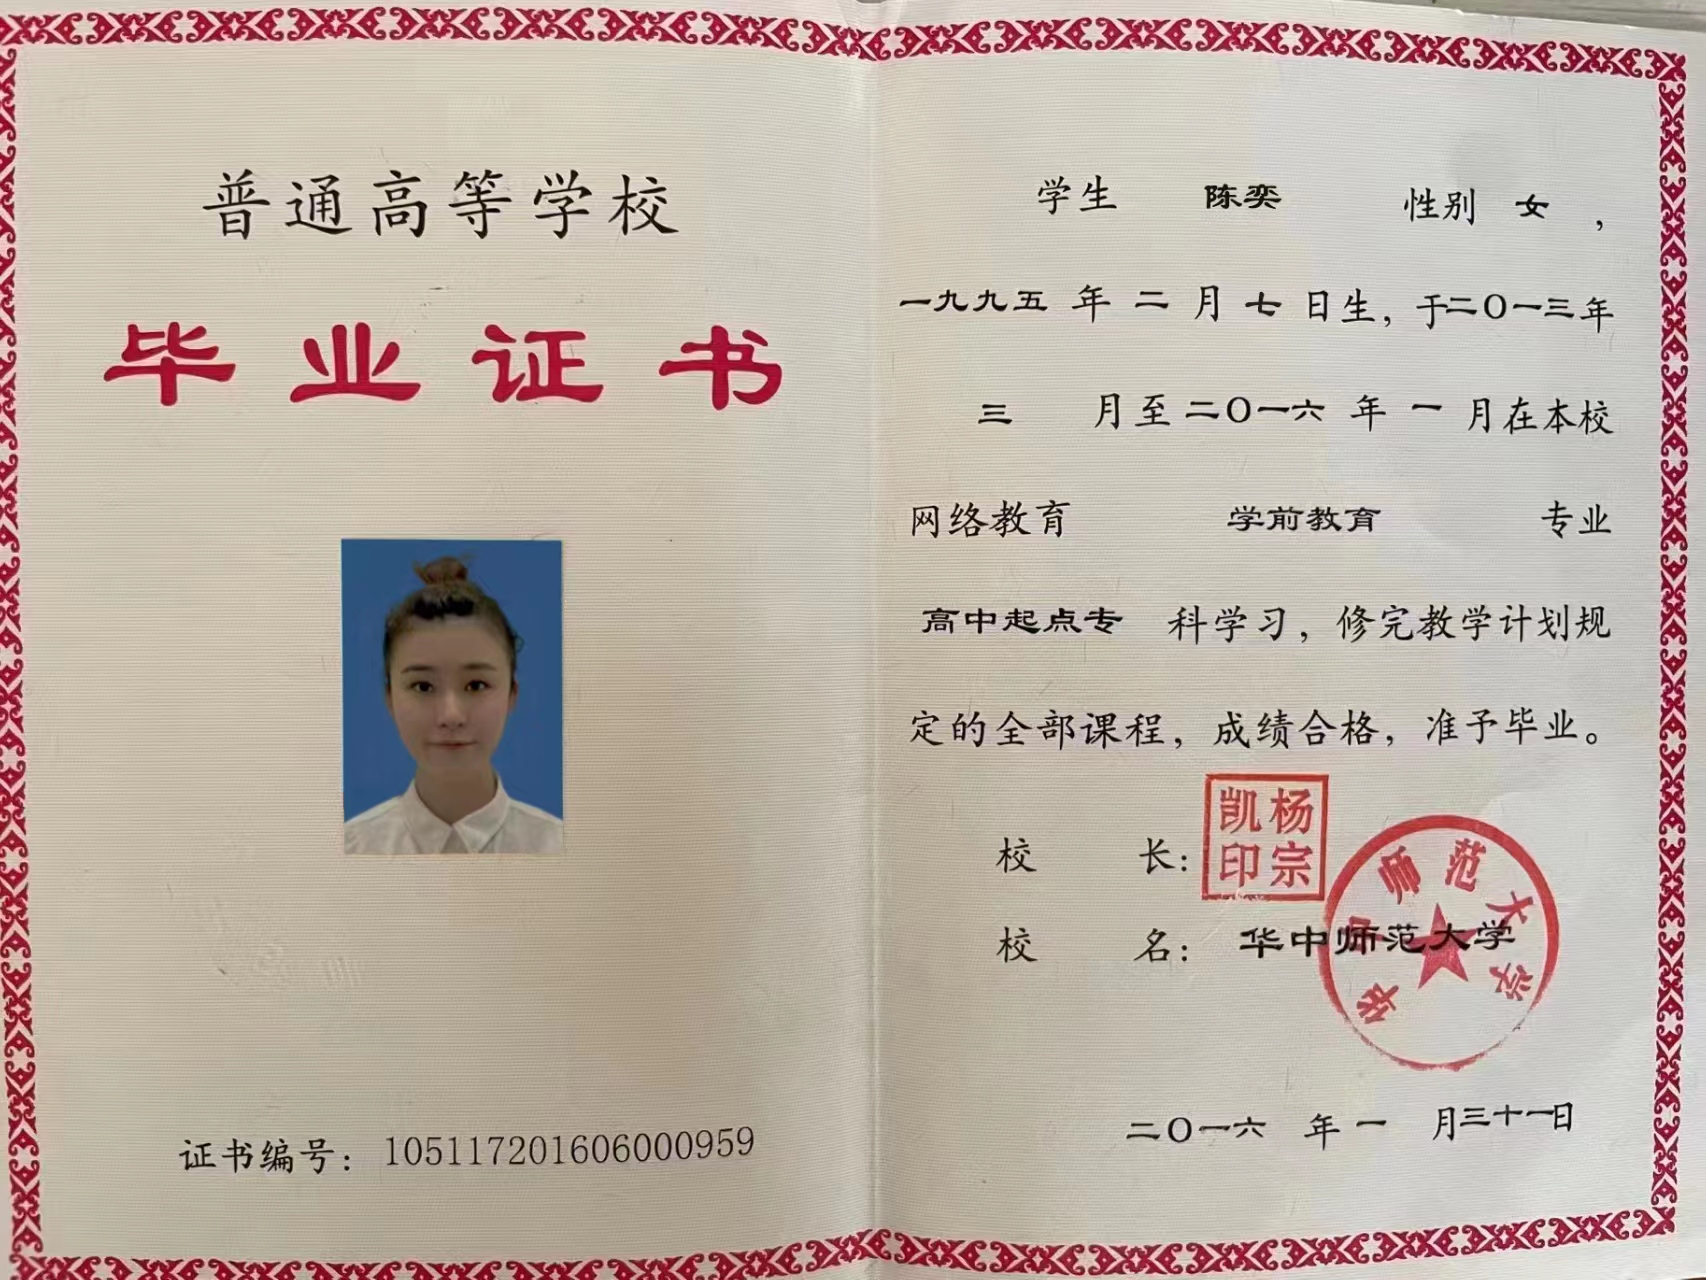 普通高等学校
毕业证书
证书编号：105117201606000959
学生 陈奕 性别 女，
一九九五年二月七日生，于二〇一三年
三 月至二〇一六年一月在本校
网络教育 学前教育 专业
高中起点专 科学习，修完教学计划规
定的全部课程，成绩合格，准予毕业。
校 长：
杨宗凯印
校 名：华中师范大学
华中师范大学
二〇一六 年一 月三十一日